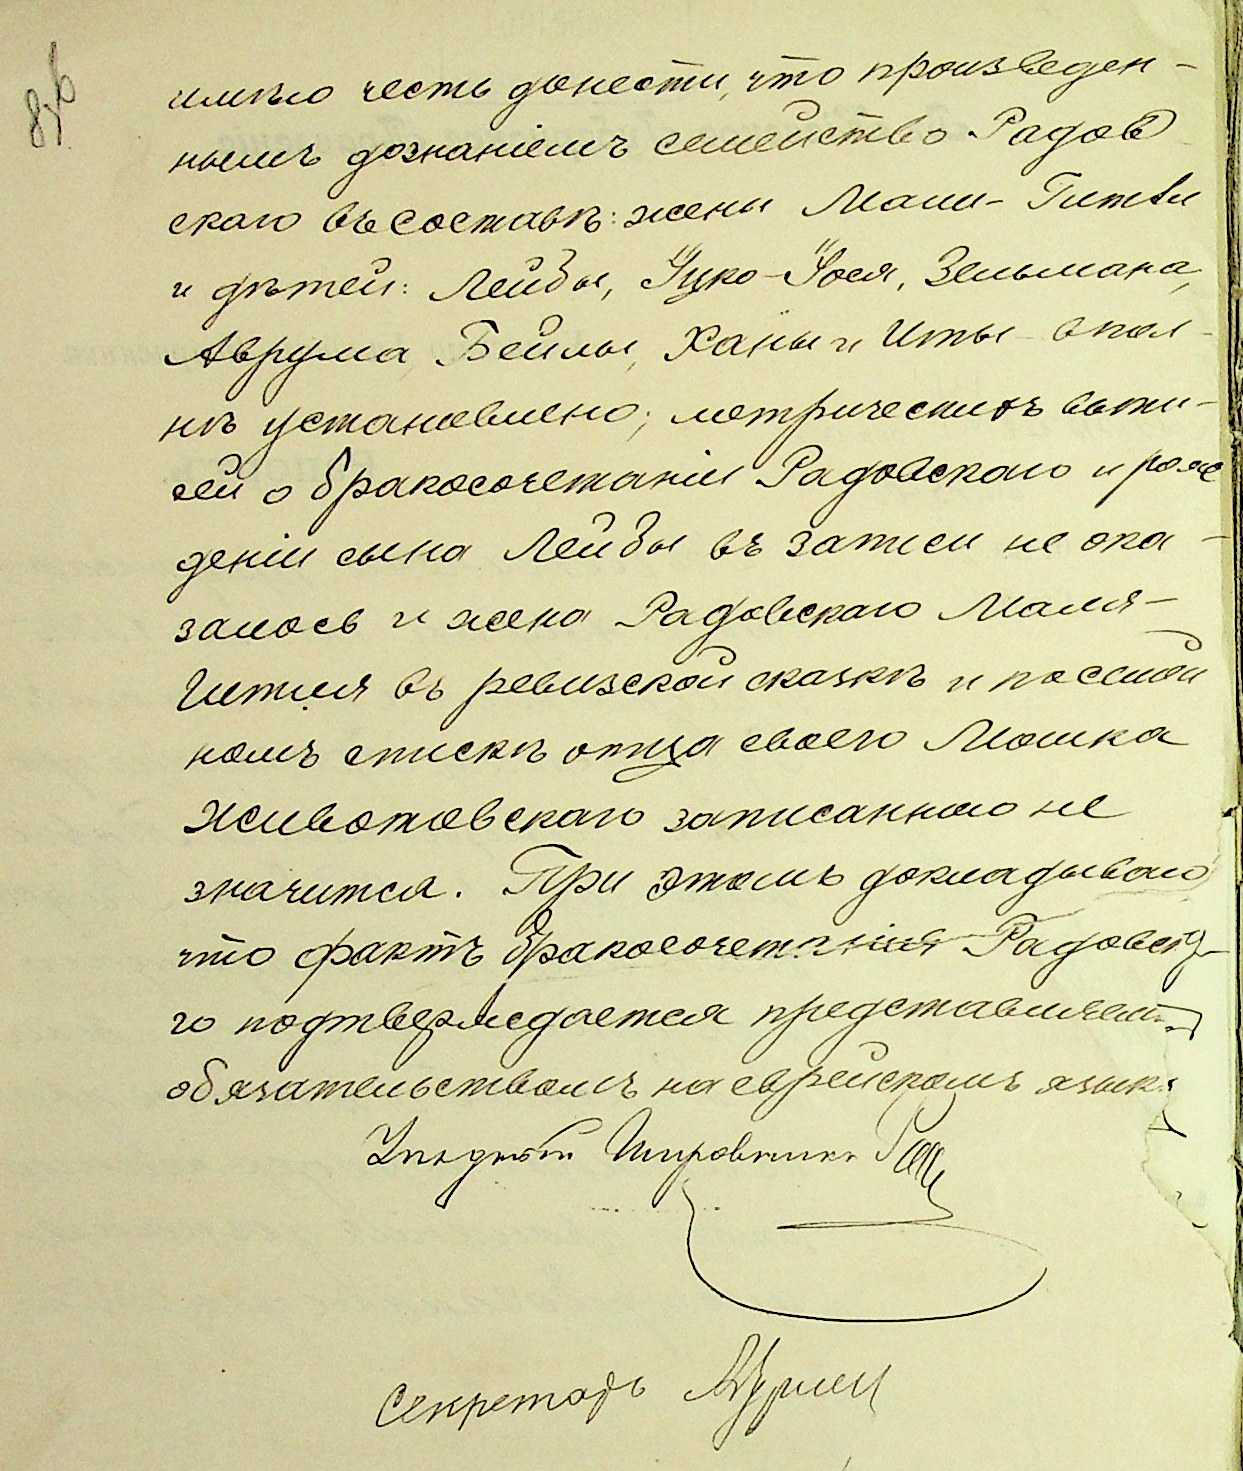 имѣю честь донести, что произведен-
нымъ дознаніемъ семейство Радов
скаго въ составѣ: жены Мали-Гитли
и дѣтей: Лейбы, Ицко-Іося, Зельмана,
Аврума, Бейлы, Ханы и Иты впол-
нѣ установлено; метрическихъ выпи-
сей о бракосочетаніи Радовскаго и рож
деніи сына Лейбы въ записи не ока-
залось и жена Радовскаго Маля-
Гитля въ ревизской сказкѣ и посемей
номъ спискѣ отца своего Мошка
Животовскаго записанною не
значится. При этомъ докладываю
что фактъ бракосочетанія Радовска-
го подтверждается представляемымъ
обязательствомъ на еврейскомъ языкѣ
Уѣздный Исправникъ
Секретарь